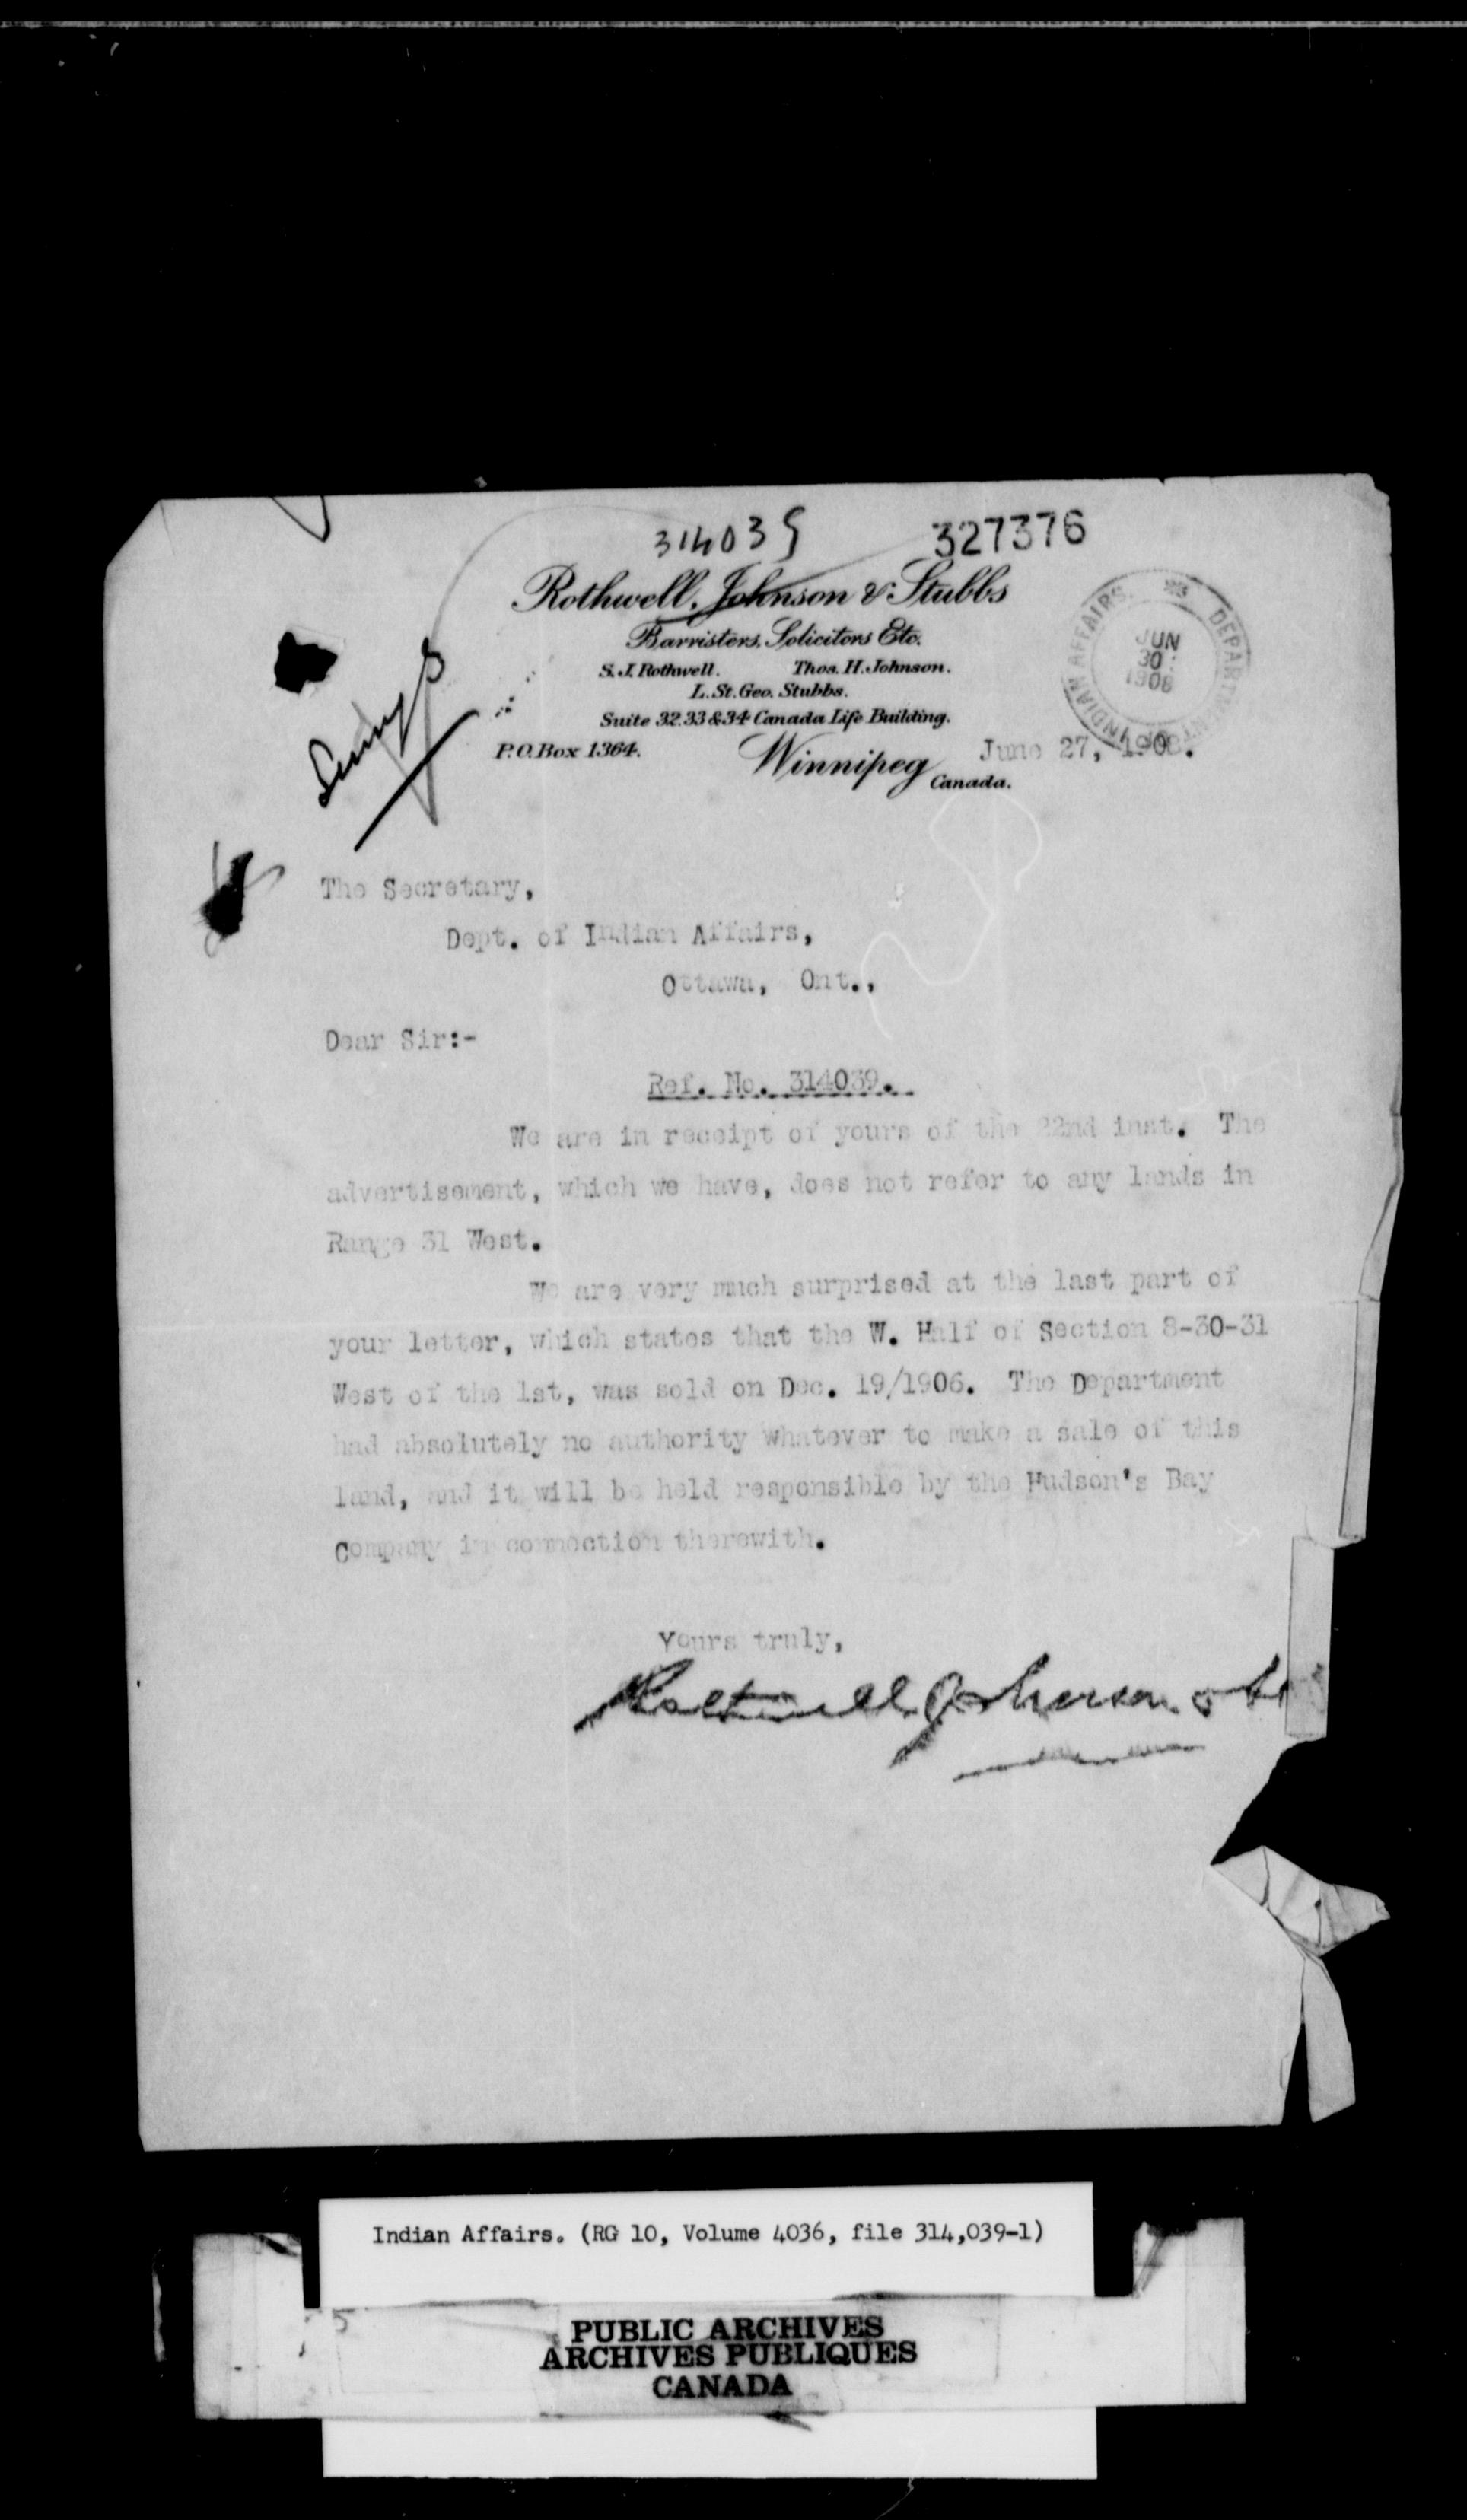 314039 327376
Rothwell, Johnson & Stubbs
Barristers, Solicitors Etc.
S. J. Rothwell. Thos. H. Johnson.
L. St. Geo. Stubbs.
Suite 32.33 & 34 Canada Life Building.
P.O. Box 1364. Winnipeg Canada. June 27, 1908.
INDIAN AFFAIRS. DEPARTMENT
JUN
30
1908
The Secretary,
Dept. of Indian Affairs,
Ottawa, Ont.,
Dear Sir:-
Ref. No. 314039.
We are in receipt of yours of the 22nd inst. The
advertisement, which we have, does not refer to any lands in
Range 31 West.
We are very much surprised at the last part of
your letter, which states that the W. Half of Section 8-30-31
West of the 1st, was sold on Dec. 19/1906. The Department
had absolutely no authority whatever to make a sale of this
land, and it will be held responsible by the Hudson's Bay
Company in connection therewith.
Yours truly,
Rothwell Johnson &
Indian Affairs. (RG 10, Volume 4036, file 314,039-1)
PUBLIC ARCHIVES
ARCHIVES PUBLIQUES
CANADA